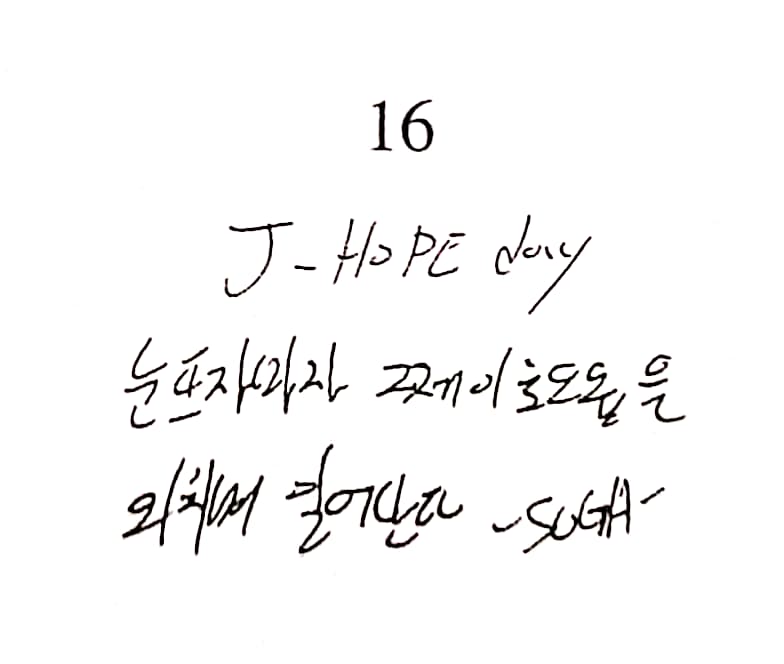 16
J-HOPE day
눈뜨자마자 제이홉을
외치며 일어난다 -SUGA-